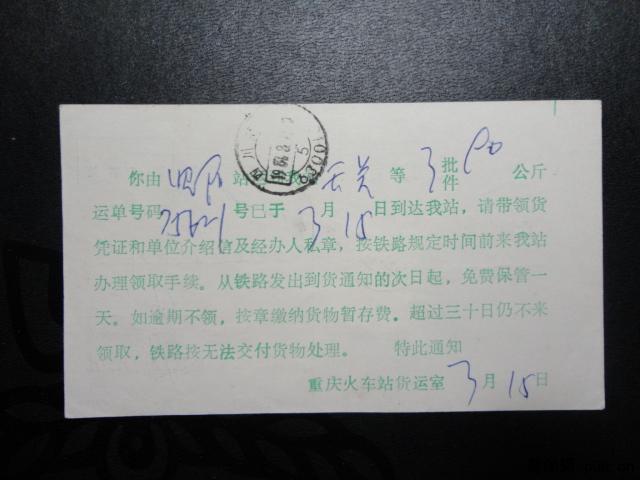 你由 站 等 3 批件 90 公斤
运单号码 75621 号已于 3 月 15 日到达我站，请带领货
凭证和单位介绍信及经办人私章，按铁路规定时间前来我站
办理领取手续。从铁路发出到货通知的次日起，免费保管一
天。如逾期不领，按章缴纳货物暂存费。超过三十日仍不来
领取，铁路按无法交付货物处理。 特此通知
重庆火车站货运室 3 月 15 日